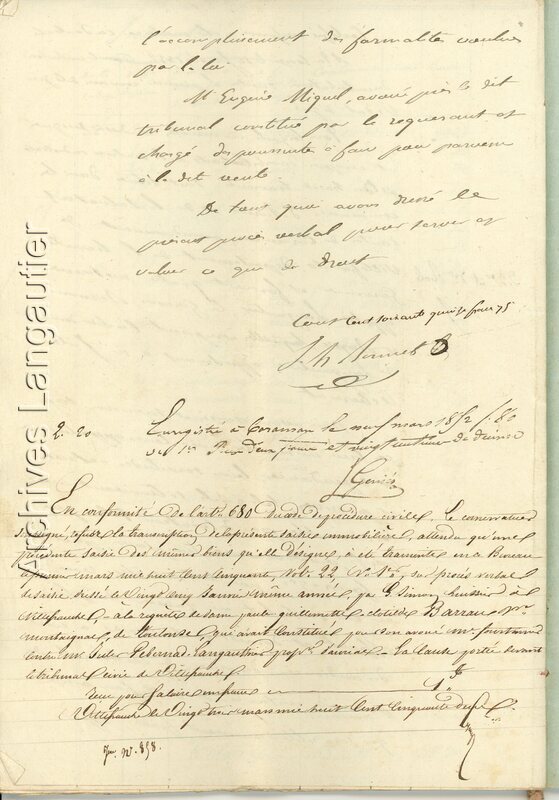 l'accomplissement des formalités voulues
par la loi
Mr Eugène Miquel, avoué près le dit
tribunal constitué par le requérant et
chargé des poursuites à faire pour parvenir
à la dite vente.
De tout quoi avons dressé le
présent procès verbal pour servir et
valoir ce que de droit
Cout cent soixante quinze francs 75
2. 20
Enregistré à le neuf mars 1852 f. 80
Reçu deux francs et vingt centimes de décime
En conformité de l'art. 680 du code de procédure civile, Le conservateur
soussigné, refuse la transcription de la présente saisie immobilière, attendu qu'une
précédente saisie des mêmes biens qu'elle désigne, a été transcrite en ce Bureau
le mars mil huit cent cinquante, vol. 22, N. sur procès verbal
de saisie dressé le vingt cinq même année, par Simon huissier à
Villefranche, à la requête de dame guillemette clotilde Barrau
montagnac, de Toulouse qui avait constitué pour son avoué mr.
contre mr Langautier La cause portée devant
le tribunal civil de Villefranche.
Reçu pour salaire un franc 1 f
Villefranche le vingt trois mars mil huit cent cinquante deux
N°. 858.
Archives Langautier